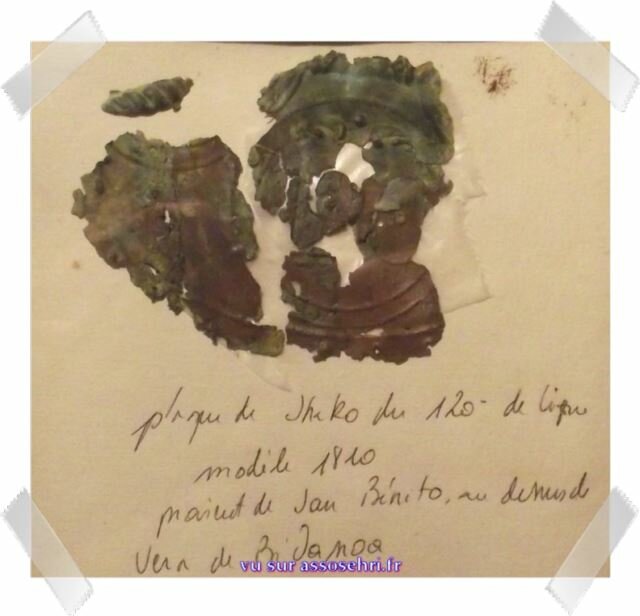 plaque de Shako du 120e de ligne
modèle 1810
provient de San Bénito, au dessus de
Vera de Bidasoa
vu sur assosehri.fr